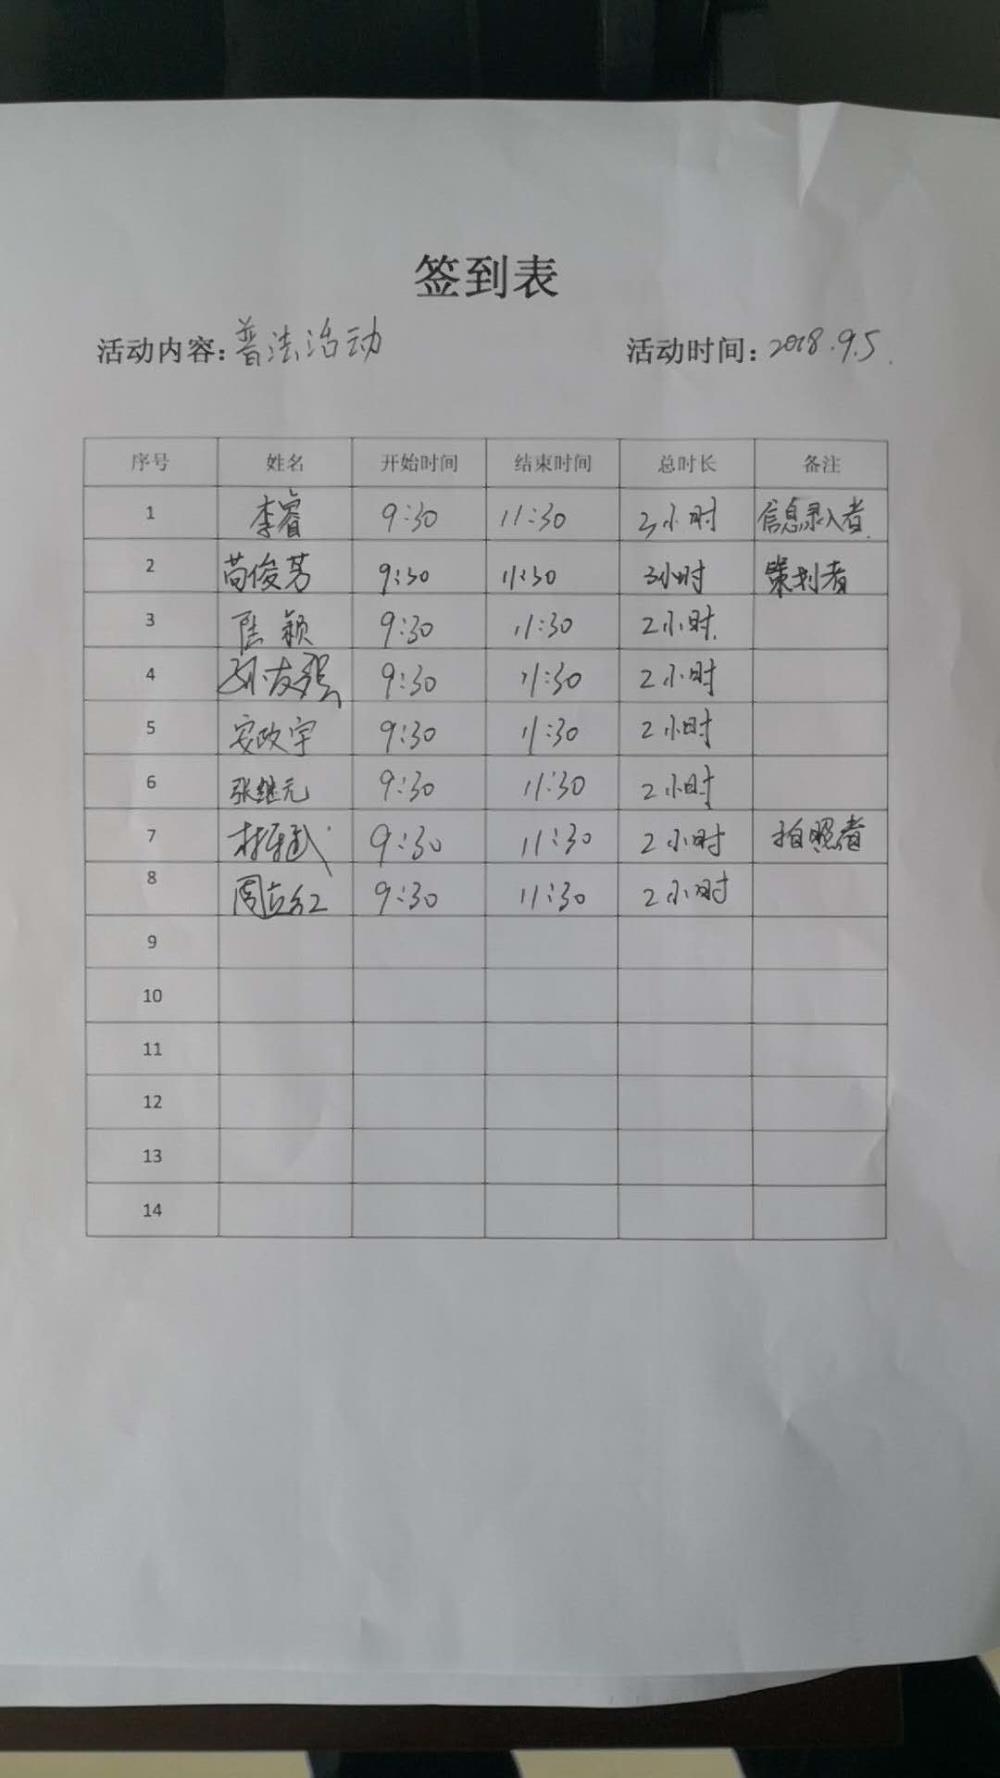 签到表
活动内容：普法活动 活动时间：2018.9.5.
序号 姓名 开始时间 结束时间 总时长 备注
1 李睿 9:30 11:30 3小时 信息录入者
2 苟俊芳 9:30 11:30 3小时 策划者
3 颖 9:30 11:30 2小时
4 孙友强 9:30 11:30 2小时
5 安改宇 9:30 11:30 2小时
6 张继元 9:30 11:30 2小时
7 9:30 11:30 2小时 拍照者
8 周立红 9:30 11:30 2小时
9
10
11
12
13
14